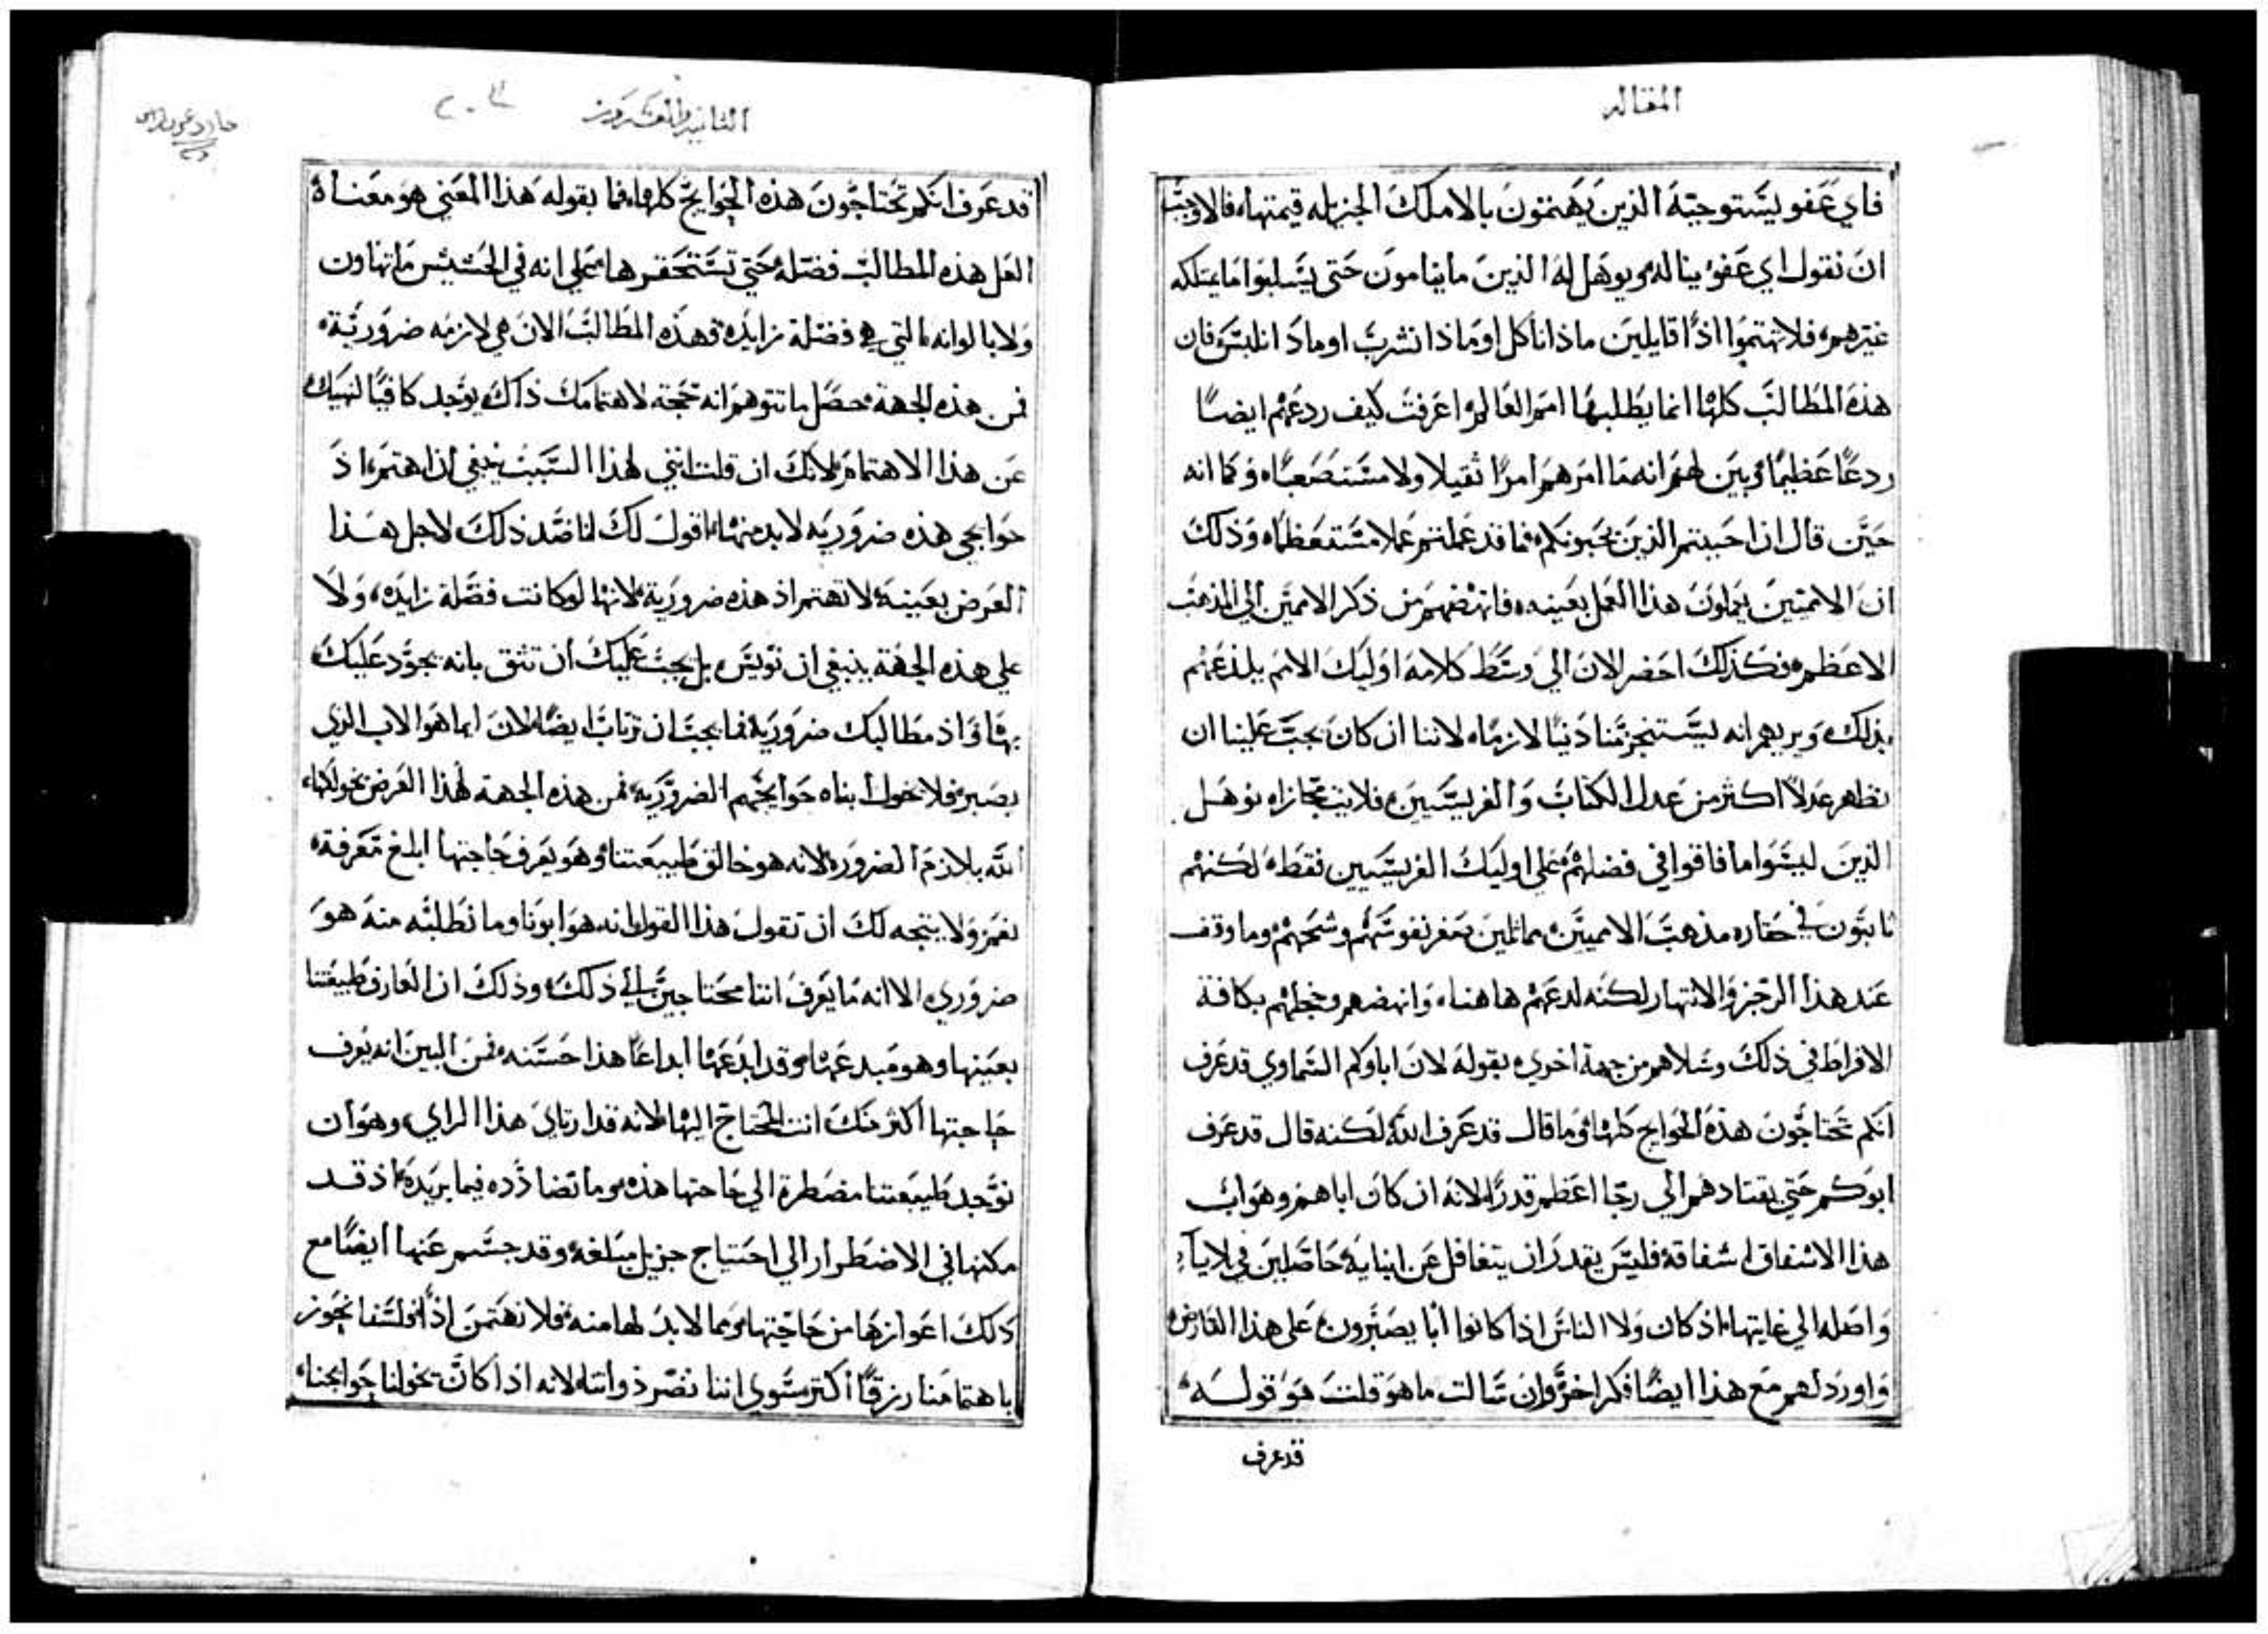 المقاله
فاي عفو يستوجبه الذين يهتمون بالاملاك الجزيله قيمتها، فالاوجب
ان نقول اي عفو يناله ويوهل له الذين ما ينامون حتى يسلبوا ما يمتلكه
غيرهم، فلا تهتموا اذًا قايلين ماذا ناكل او ماذا نشرب او ماذا نلبس، فان
هذه المطالب كلها انما يطلبها امم العالم، اعرفت كيف ردعهم ايضًا
ردعًا عظيمًا، وبين لهم انه ما امرهم امرًا ثقيلا ولا مستصعبًا، وكما انه
حين قال اذا احببتم الذين يحبونكم، فما قد عملتم عملا مستعظمًا، وذلك
ان الامميين يعملون هذا العمل بعينه، فانهضهم من ذكر الامميين الي المذهب
الاعظم، فكذلك احضر الان الي وسط كلامه اوليك الامم يلذعهم
بذلك، ويريهم انه يستنجز منا دينًا لازمًا، لاننا ان كان يجب علينا ان
نظهر عدلاً اكثر من عدل الكتاب والفريسيين، فلايت مجازاه نوهل
الذين ليسوا ما فاقوا في فضلهم علي اوليك الفريسيين فقط، لكنهم
ثابتون في حقاره مذهب الامميين، مماثلين صغر نفوسهم وشحهم، وما وقف
عند هذا الزجر والانتهار لكنه لدعهم هاهنا، وانهضهم وخجلهم بكافة
الافراط في ذلك وسلاهم من جهة اخري، بقوله لان اباكم السماوي قد عرف
انكم تحتاجون هذه الحوايج كلها، وما قال قد عرف الله لكنه قال قد عرف
ابوكم حتي يقتادهم الي رجا اعظم قدرًا، لانه ان كان اباهم وهو اب
هذا الاشفاق اشفاقه، فليس يقدر ان يتغافل عن ابنايه حاصلين في بلايا
واصله الي غايتها، اذ كان ولا الناس اذا كانوا ابا يصبرون، على هذا العارض
واورد لهم مع هذا ايضًا فكرا اخر، وان سالت ما هو قلت هو قوله،
قد عرف
الثانيه والعشرون
قد عرف انكم تحتاجون هذه الحوايج كلها، فما بقوله هذا المعني هو معناه
العل هذه المطالب فضله حتي تستحقرها، علي انه في الحشيش ما تهاون
ولا بالوانه، التي هي فضلة زايده، فهذه المطالب الان هي لازمه ضرورية،
فمن هذه الجهة، حصل ما تتوهم انه حجة لاهتمامك ذاك يوجد كافيًا لنهيك
عن هذا الاهتمام، لانك ان قلت انني لهذا السبب ينبغي ان اهتم، اذ
حوايجي هذه ضروريه لا بد منها، اقول لك انا ضد ذلك لاجل هذا
الغرض بعينه، لا تهتم اذ هذه ضرورية، لانها لو كانت فضله زايده، ولا
علي هذه الجهة ينبغي ان تويس، بل يجب عليك ان تثق بانه يجود عليك
بها، واذ مطالبك ضروريه، فما يجب ان ترتاب ايضًا، لان ايما هو الاب الذي
يصبر، فلا يخول ابناه حوايجهم الضروريه، فمن هذه الجهة لهذا الغرض يخولكها،
الله بلازم الضروره، لانه هو خالق طبيعتنا، وهو يعرف حاجتها ابلغ معرفة،
نعم، ولا يتجه لك ان تقول هذا القول، انه هو ابونا وما نطلبه منه هو
ضروري، الا انه ما يعرف اننا محتاجين الي ذلك، وذلك ان العارف طبيعتنا
بعينها وهو مبدعها، وقد ابدعها ابداعًا هذا حسنه، فمن البين انه يعرف
حاجتها اكثر منك انت المحتاج اليها، لانه قد ارتاي هذا الراي، وهو ان
توجد طبيعتنا مضطرة الي حاجتها هذه، وما تضادده فيما يريده، اذ قد
مكنها في الاضطرار الي احتياج جزيل مبلغه، وقد حسم عنها ايضًا مع
ذلك اعوازها من حاجتها، ومما لا بد لها منه، فلا نهتمن اذًا، فلسنا نحوز
باهتمامنا رزقًا اكثر سوي اننا نضر ذواتنا، لانه اذا كان يخولنا حوايجنا،